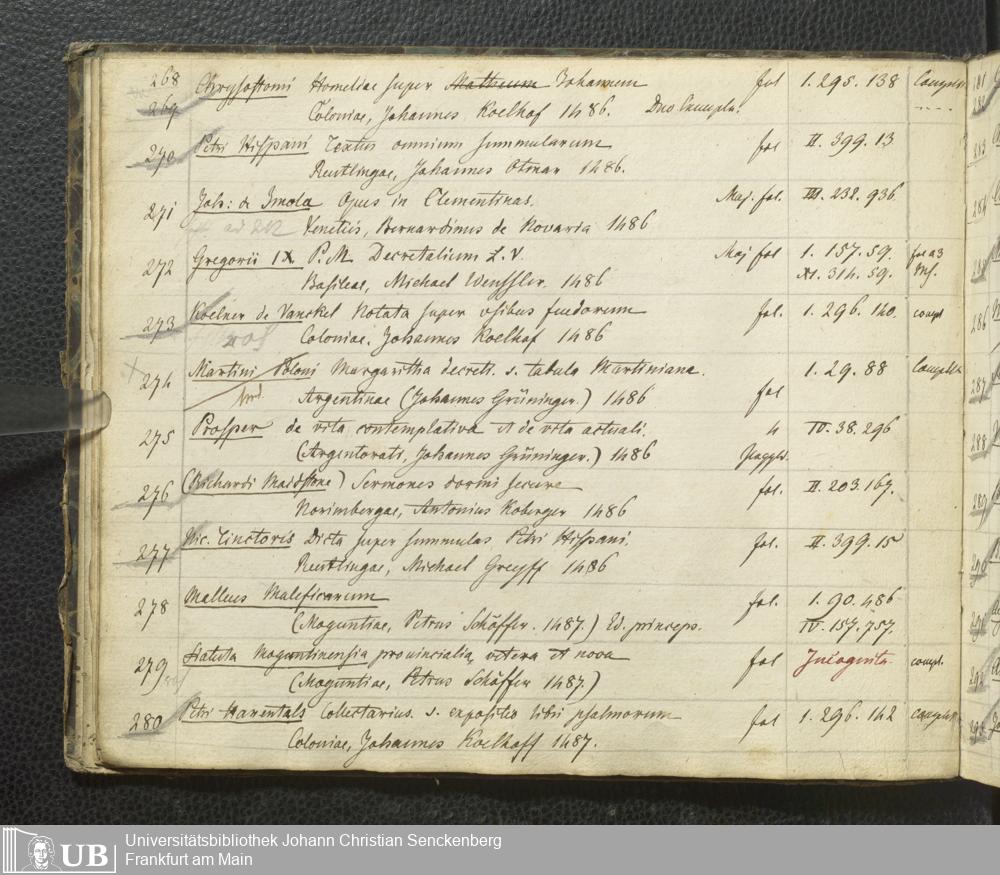 268 Chrysostomi Homeliae super Matheum Johannem fol 1. 295. 138 Complet.
269 Coloniae, Johannes Koelhof 1486. Duo Exempla.
270 Petri Hispani Textus omnium summularum fol II. 399. 13
Reutlingae, Johannes Otmar 1486.
271 Joh: de Imola Opus in Clementinas. Maj. fol. III. 232. 936.
Venetiis, Bernardinus de Novaria 1486
272 Gregorii IX. P. M. Decretalium L. V. Maj fol 1. 157. 59.
Basileae, Michael Wenssler. 1486 XI. 314. 59.
273 Koelner de Vanckel Notata super usibus feudorum fol. 1. 296. 140. compl
Coloniae. Johannes Koelhof 1486
274 Martini Poloni Margaritha decreti s. tabula Martiniana. 1. 29. 88 Complet.
Argentinae (Johannes Grüninger.) 1486 fol
275 Prosper de vita contemplativa et de vita actuali. 4 IV. 38. 296
(Argentorati, Johannes Grüninger.) 1486
276 (Richardi Maidstone) Sermones dormi secure fol. II. 203. 167.
Norimbergae, Antonius Koberger 1486
277 Nic. Tinctoris Dicta super summulas Petri Hispani. fol. II. 399. 15
Reutlingae, Michael Greyff 1486
278 Malleus Maleficarum fol. 1. 90. 486
(Moguntiae, Petrus Schöffer. 1487.) Ed. princeps. IV. 157. 757.
279 Statuta Moguntinensia provincialia, vetera et nova fol Incognita. compl.
(Moguntiae, Petrus Schöffer 1487.)
280 Petri Harentals Collectarius. s. expositio libri psalmorum fol 1. 296. 142 Complet.
Coloniae, Johannes Koelhoff 1487.
UB
Universitätsbibliothek Johann Christian Senckenberg
Frankfurt am Main